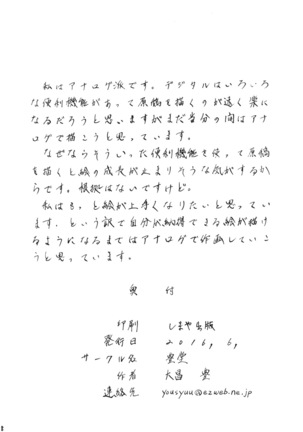 私はアナログ派です。デジタルはいろいろ
な便利機能があって原稿を描くのが速く楽に
なるだろうと思いますがまだ当分の間はアナ
ログで描こうと思っています。
なぜならそういった便利機能を使って原稿
を描くと絵の成長が止まりそうな気がするか
らです。根拠はないですけど。
私はもっと絵が上手くなりたいと思ってい
ます。という訳で自分が納得できる絵が描け
るようになるまではアナログで作画していこ
うと思っています。
奥付
印刷 しまや出版
発行日 2016,6,
サークル名 愛堂
作者 大昌
連絡先 yousyuu@ezweb.ne.jp